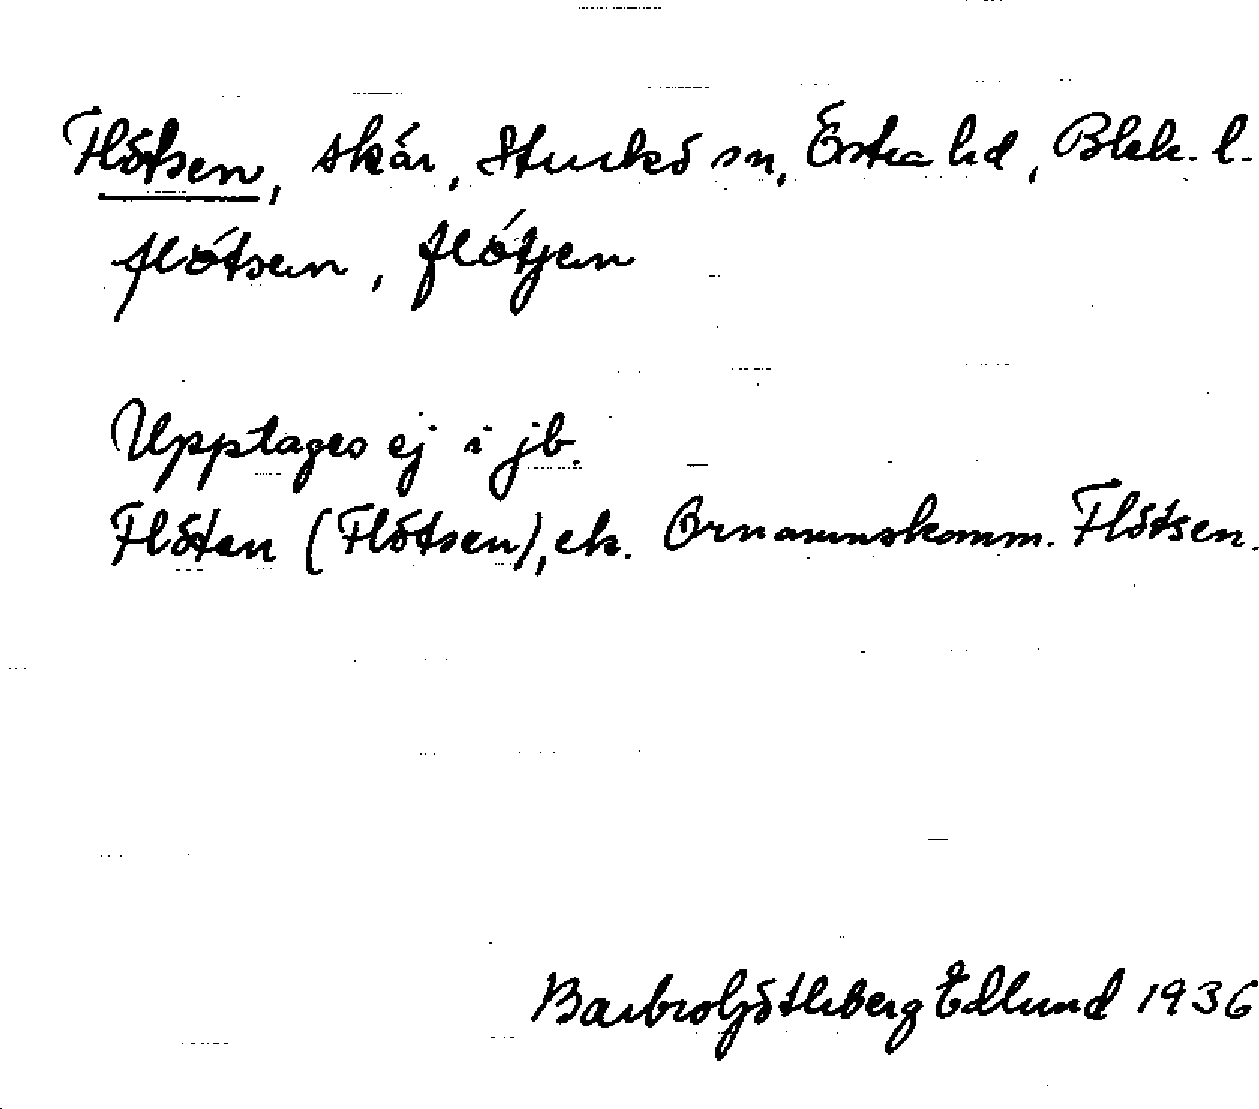 Flötsen, skär, Sturkö sn, Östra hd, Blek. l.
flötsen, flötjen
Upptages ej i jb.
Flöten (Flötsen), ek. Ornamnskomm. Flötsen.
Barbro Götherberg Edlund 1936